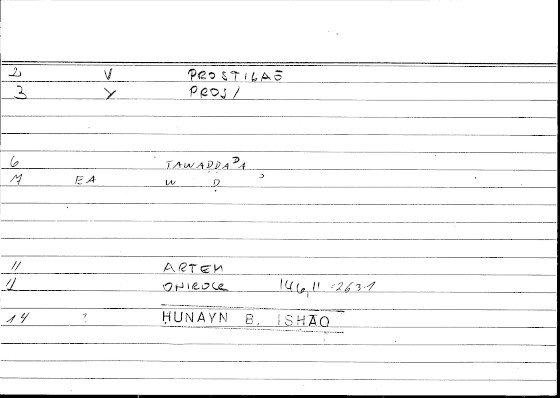 2 V PROSTILAŌ
3 Y PROS/
6 TAWADDAᴰA
M EA W Ḍ ʾ
11 ARTEM
11 ONIROCR 146,11 = 263.1
14 ? ḤUNAYN B. ISḤĀQ